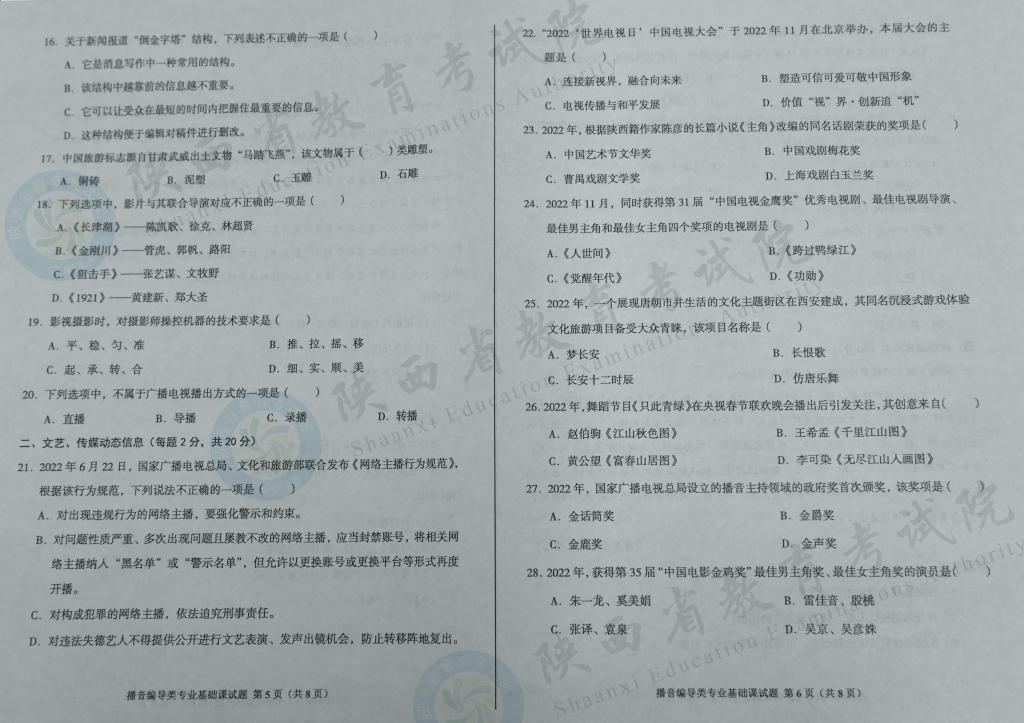 16. 关于新闻报道“倒金字塔”结构，下列表述不正确的一项是（　　）
A. 它是消息写作中一种常用的结构。
B. 该结构中越靠前的信息越不重要。
C. 它可以让受众在最短的时间内把握住最重要的信息。
D. 这种结构便于编辑对稿件进行删改。
17. 中国旅游标志源自甘肃武威出土文物“马踏飞燕”，该文物属于（　　）类雕塑。
A. 铜铸　　B. 泥塑　　C. 玉雕　　D. 石雕
18. 下列选项中，影片与其联合导演对应不正确的一项是（　　）
A.《长津湖》——陈凯歌、徐克、林超贤
B.《金刚川》——管虎、郭帆、路阳
C.《狙击手》——张艺谋、文牧野
D.《1921》——黄建新、郑大圣
19. 影视摄影时，对摄影师操控机器的技术要求是（　　）
A. 平、稳、匀、准　　B. 推、拉、摇、移
C. 起、承、转、合　　D. 细、实、顺、美
20. 下列选项中，不属于广播电视播出方式的一项是（　　）
A. 直播　　B. 导播　　C. 录播　　D. 转播
二、文艺、传媒动态信息（每题 2 分，共 20 分）
21. 2022 年 6 月 22 日，国家广播电视总局、文化和旅游部联合发布《网络主播行为规范》，
根据该行为规范，下列说法不正确的一项是（　　）
A. 对出现违规行为的网络主播，要强化警示和约束。
B. 对问题性质严重、多次出现问题且屡教不改的网络主播，应当封禁账号，将相关网
络主播纳入“黑名单”或“警示名单”，但允许以更换账号或更换平台等形式再度
开播。
C. 对构成犯罪的网络主播，依法追究刑事责任。
D. 对违法失德艺人不得提供公开进行文艺表演、发声出镜机会，防止转移阵地复出。
播音编导类专业基础课试题 第 5 页（共 8 页）
22. “2022 ‘世界电视日’中国电视大会”于 2022 年 11 月在北京举办，本届大会的主
题是（　　）
A. 连接新视界，融合向未来　　B. 塑造可信可爱可敬中国形象
C. 电视传播与和平发展　　D. 价值“视”界·创新追“机”
23. 2022 年，根据陕西籍作家陈彦的长篇小说《主角》改编的同名话剧荣获的奖项是（　　）
A. 中国艺术节文华奖　　B. 中国戏剧梅花奖
C. 曹禺戏剧文学奖　　D. 上海戏剧白玉兰奖
24. 2022 年 11 月，同时获得第 31 届“中国电视金鹰奖”优秀电视剧、最佳电视剧导演、
最佳男主角和最佳女主角四个奖项的电视剧是（　　）
A.《人世间》　　B.《跨过鸭绿江》
C.《觉醒年代》　　D.《功勋》
25. 2022 年，一个展现唐朝市井生活的文化主题街区在西安建成，其同名沉浸式游戏体验
文化旅游项目备受大众青睐，该项目名称是（　　）
A. 梦长安　　B. 长恨歌
C. 长安十二时辰　　D. 仿唐乐舞
26. 2022 年，舞蹈节目《只此青绿》在央视春节联欢晚会播出后引发关注，其创意来自（　　）
A. 赵伯驹《江山秋色图》　　B. 王希孟《千里江山图》
C. 黄公望《富春山居图》　　D. 李可染《无尽江山入画图》
27. 2022 年，国家广播电视总局设立的播音主持领域的政府奖首次颁奖，该奖项是（　　）
A. 金话筒奖　　B. 金爵奖
C. 金鹿奖　　D. 金声奖
28. 2022 年，获得第 35 届“中国电影金鸡奖”最佳男主角奖、最佳女主角奖的演员是（　　）
A. 朱一龙、奚美娟　　B. 雷佳音、殷桃
C. 张译、袁泉　　D. 吴京、吴彦姝
播音编导类专业基础课试题 第 6 页（共 8 页）
陕西省教育考试院
Shaanxi Education Examinations Authority
陕西省教育考试院
Shaanxi Education Examinations Authority
陕西省教育考试院
Shaanxi Education Examinations Authority